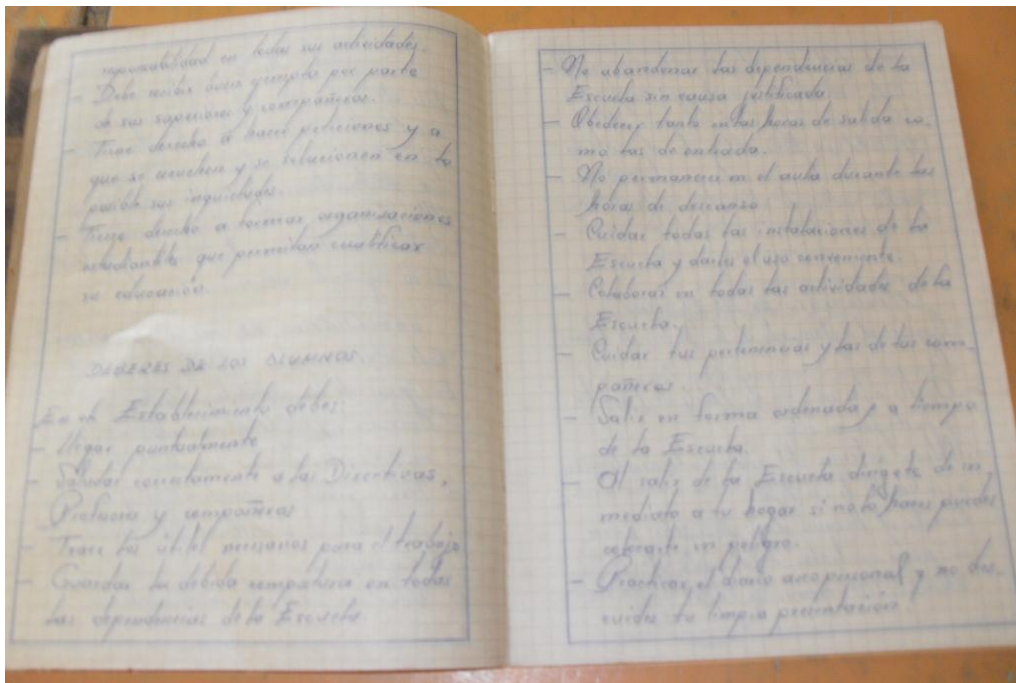 responsabilidad en todas sus actividades.
- Debe recibir buen ejemplo por parte
de sus superiores y compañeros.
- Tiene derecho a hacer peticiones y a
que se escuchen y se solucionen en lo
posible sus inquietudes.
- Tiene derecho a formar organizaciones
estudiantiles que permitan cualificar
su educación.
DEBERES DE LOS ALUMNOS.
En el Establecimiento debes:
- Llegar puntualmente
- Saludar correctamente a las Directivas,
Profesores y compañeros
- Traer los útiles necesarios para el trabajo
- Guardar la debida compostura en todas
las dependencias de la Escuela
- No abandonar las dependencias de la
Escuela sin causa justificada.
- Obedecer tanto en las horas de salida co-
mo las de entrada.
- No permanecer en el aula durante las
horas de descanso
- Cuidar todas las instalaciones de la
Escuela y darles el uso conveniente.
- Colaborar en todas las actividades de la
Escuela.
- Cuidar tus pertenencias y las de tus com-
pañeros.
- Salir en forma ordenada y a tiempo
de la Escuela.
- Al salir de la Escuela dirígete de in-
mediato a tu hogar si no lo haces puedes
colocarte en peligro.
- Practicar el diario aseo personal y no des-
cuides tu limpia presentación